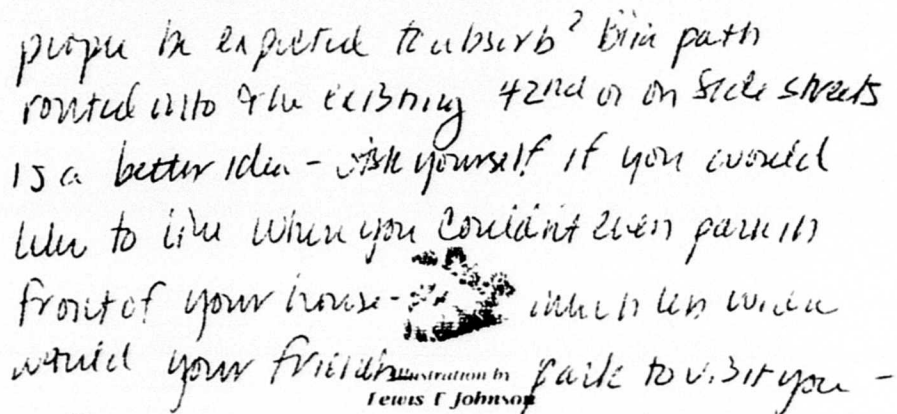 people be expected to absorb? Bike path
routed into the existing 42nd or on side streets
is a better idea - ask yourself if you would
like to live where you couldn't even park in
front of your house - much less where
would your friends park to visit you -
Illustration by
Lewis T Johnson